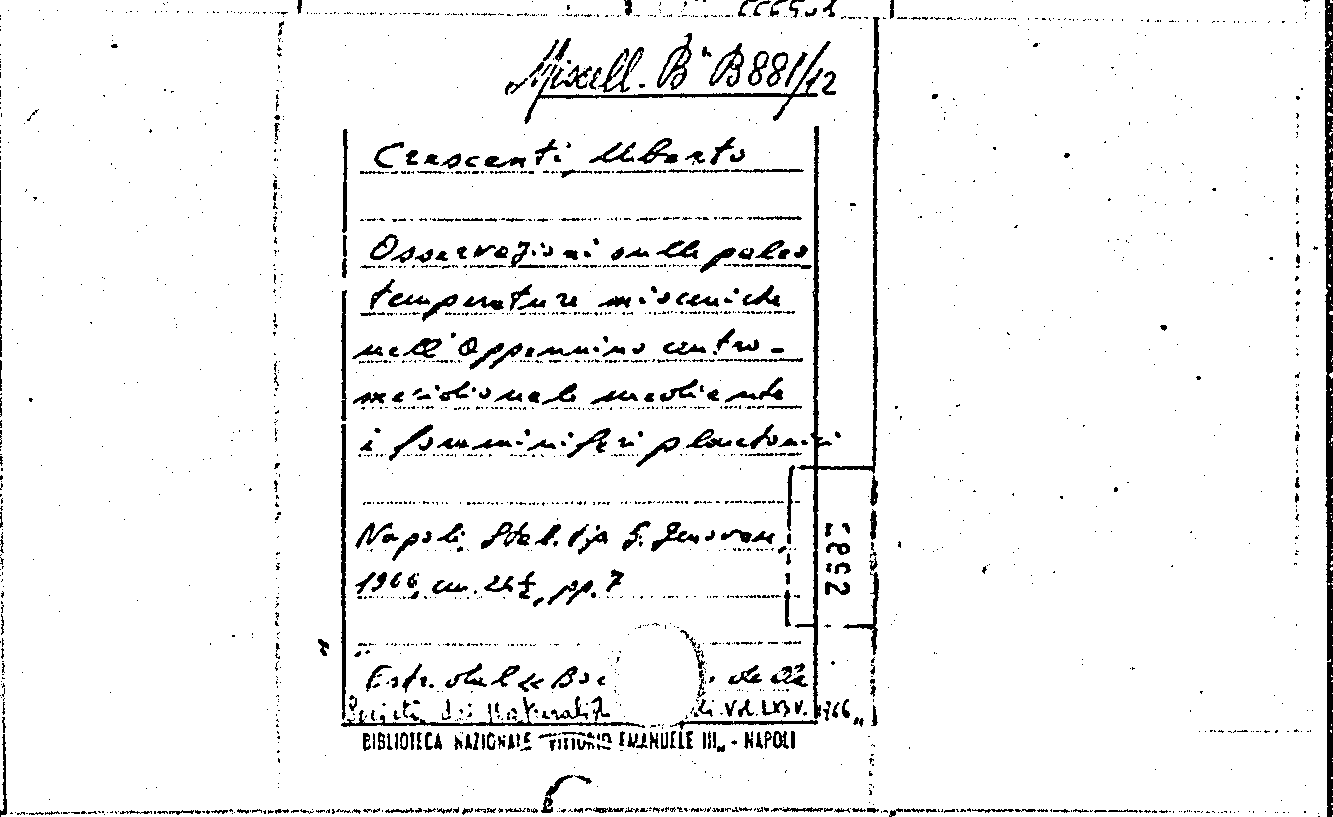 Miscell. Bª B881/12
Crescenti, Uberto
Osservazioni sulle paleo
temperature mioceniche
nell'Appennino centro-
meridionale mediante
i foraminiferi planctonici
Napoli, Stab. tip. G. Genovese,
1966, cm. 24½, pp. 7
Estr. dal « Bo delle
Società dei Naturalis li Vol. LXXV. 1966„
BIBLIOTECA NAZIONALE "VITTORIO EMANUELE III„ - NAPOLI